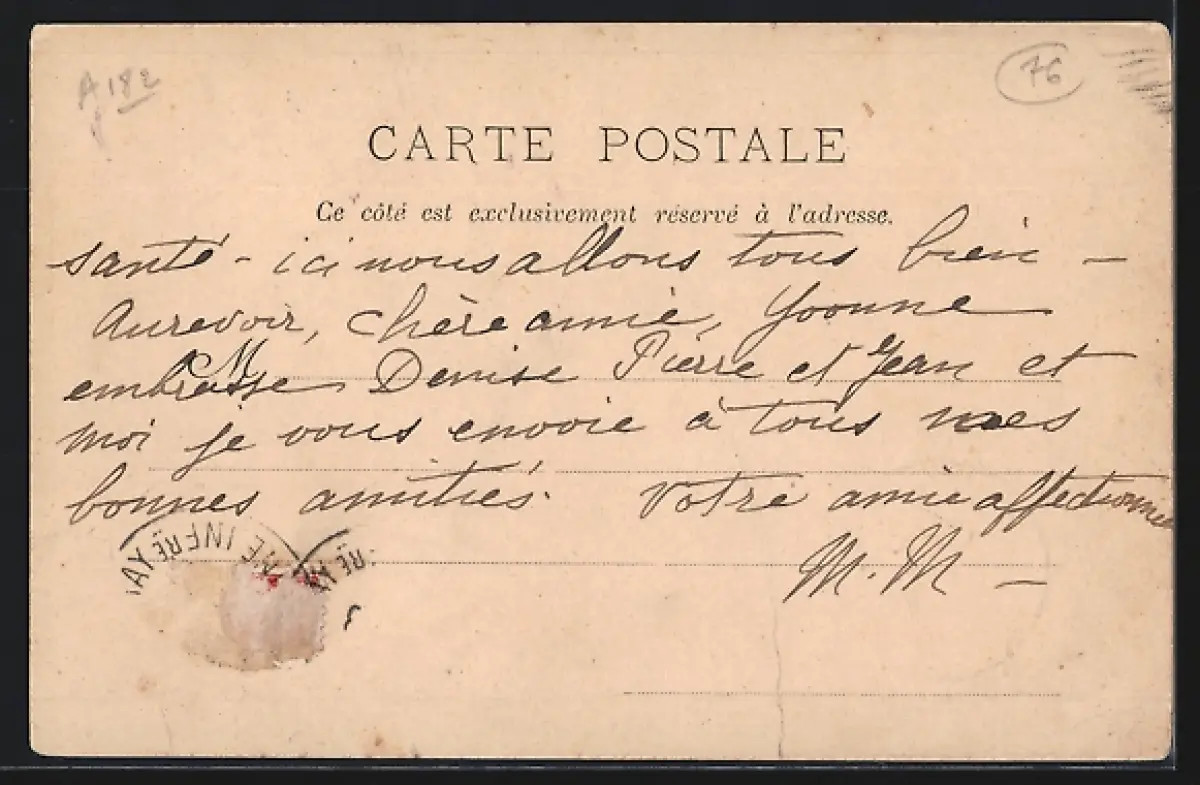 A 182
76
CARTE POSTALE
Ce côté est exclusivement réservé à l'adresse.
santé - ici nous allons tous bien -
Au revoir, chère amie, Yvonne
M
embrasse Denise Pierre et Jean et
moi je vous envoie à tous mes
bonnes amitiés. Votre amie affectionnée
M. M -
INFRE